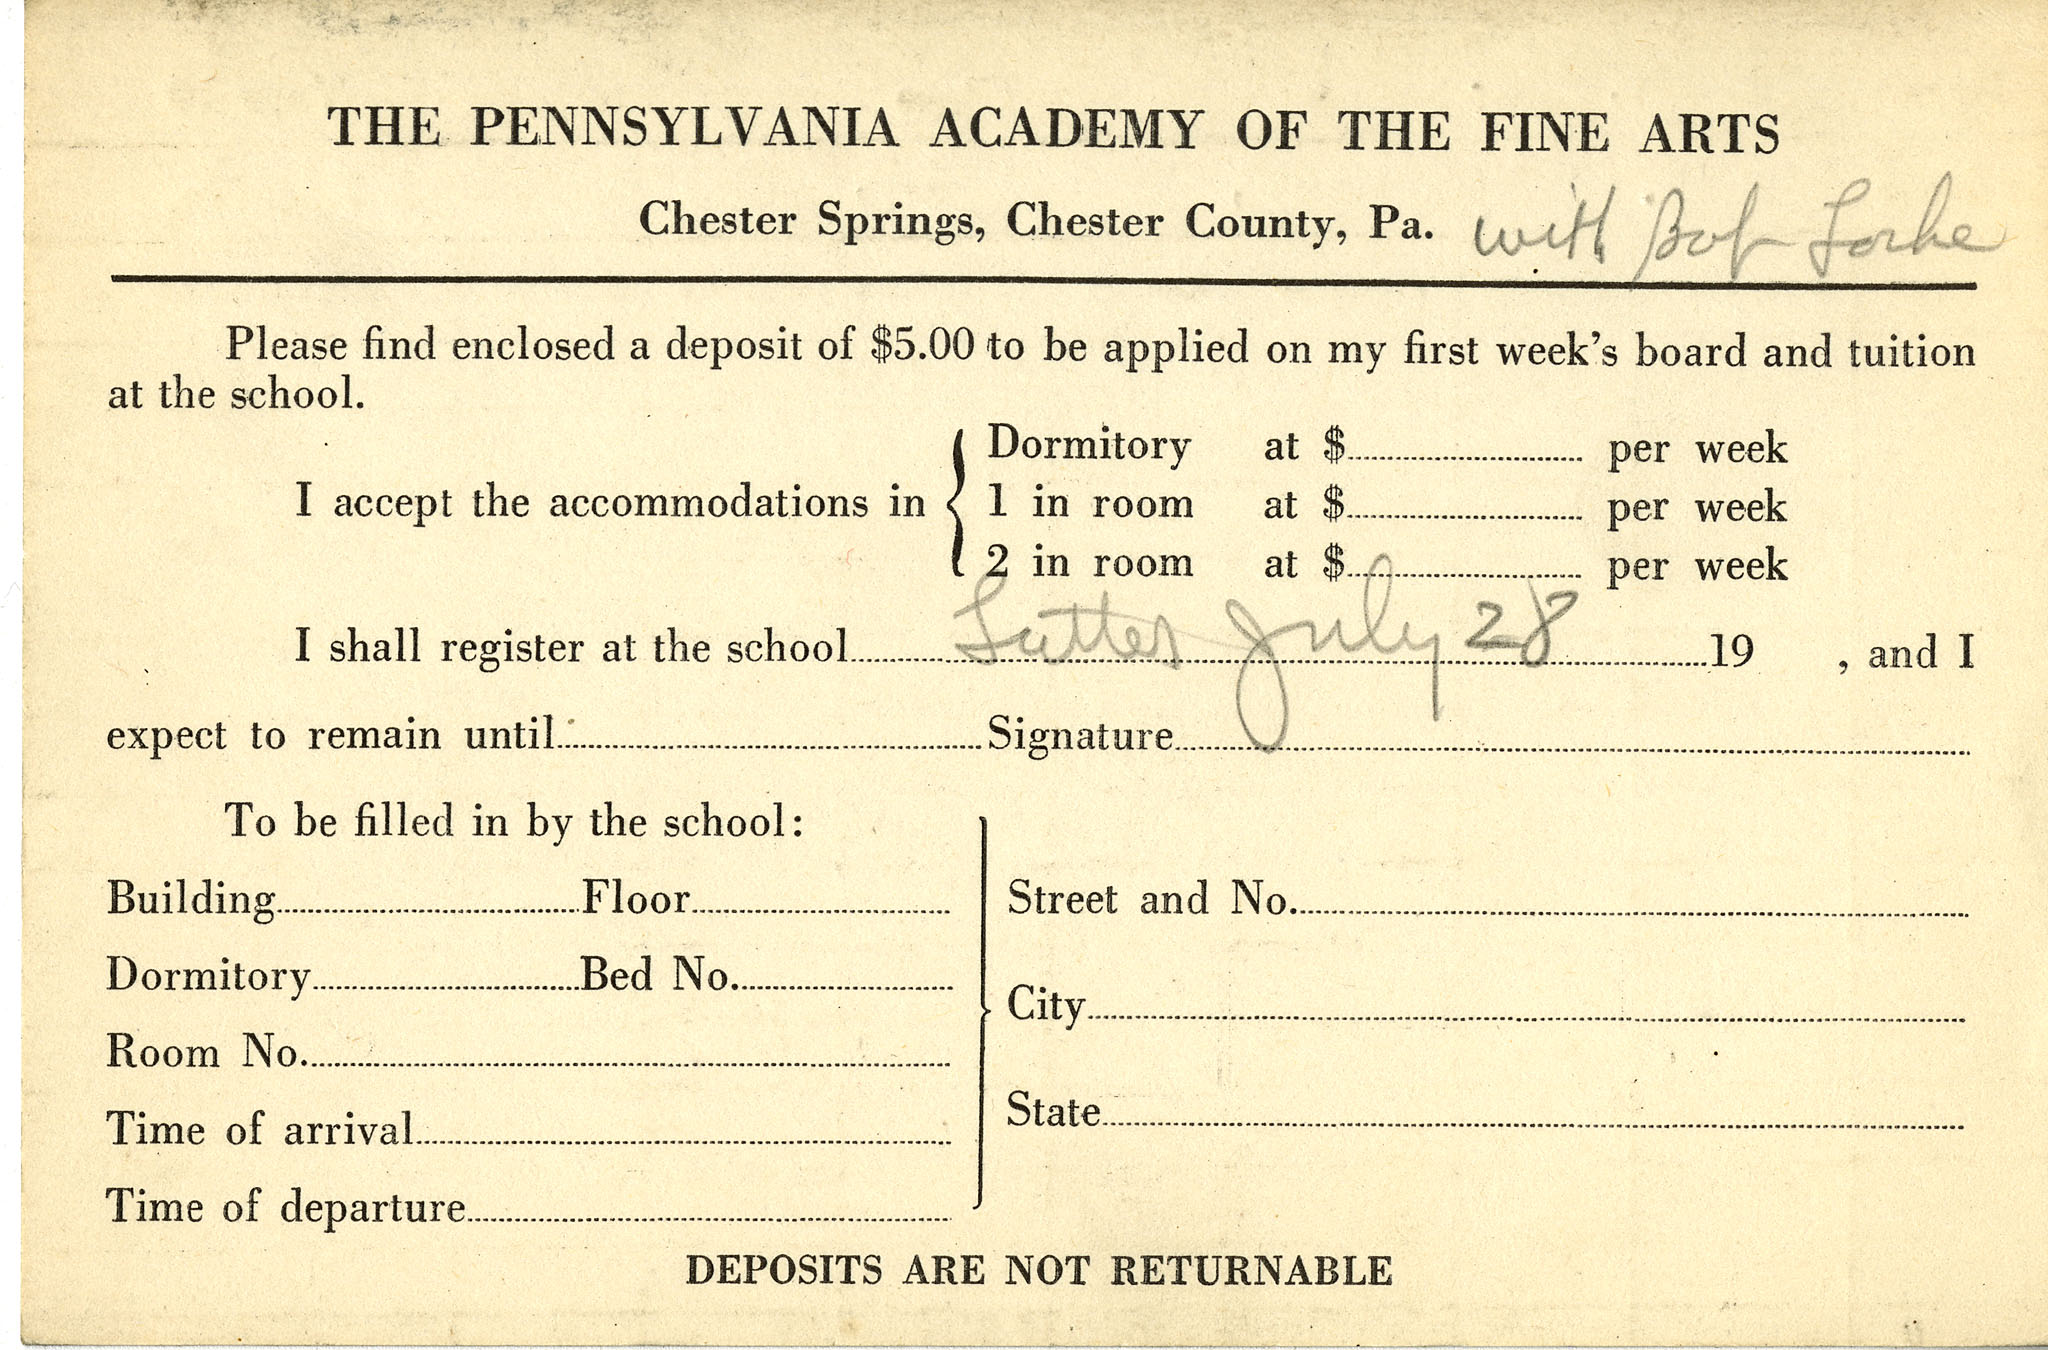 THE PENNSYLVANIA ACADEMY OF THE FINE ARTS
Chester Springs, Chester County, Pa. with Bob
Please find enclosed a deposit of $5.00 to be applied on my first week's board and tuition
at the school.
I accept the accommodations in
Dormitory at $ per week
1 in room at $ per week
2 in room at $ per week
I shall register at the school July 28 19 , and I
expect to remain until Signature
To be filled in by the school:
Building Floor
Dormitory Bed No.
Room No.
Time of arrival
Time of departure
Street and No.
City
State
DEPOSITS ARE NOT RETURNABLE